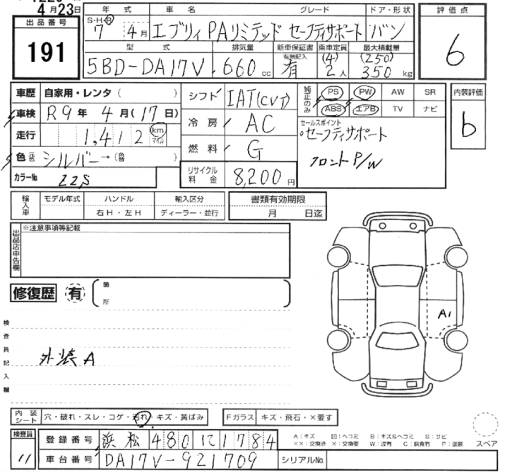 4月23日
出品番号
191
年式 車名 グレード ドア・形状
S・H・R
7年4月 エブリィ PAリミテッド セーフティサポート バン
型式 排気量 新車保証書 乗車定員 最大積載量
有無記入
5BD-DA17V 660cc 有 (4) 2人 (250) 350kg
評価点
6
車歴 自家用・レンタ( )
車検 R9年4月(17日)
走行 1,412 km マイル
色 シルバー→( )
カラーNo. ZZS
シフト IAT(CVT)
冷房 AC
燃料 G
リサイクル料金 8,200円
純正のみ PS PW AW SR
ABS エアB TV ナビ
セールスポイント
・セーフティサポート
フロントP/W
内装評価
b
輸入車 モデル年式 ハンドル 輸入区分
年 右H・左H ディーラー・並行
書類有効期限
月 日迄
出品店申告欄
※注意事項等記載
修復歴 有 箇所
検査員記入欄
外装A
A1
内装シート 穴・破れ・スレ・コゲ・汚れ・キズ・黄ばみ
Fガラス キズ・飛石・×要す
検査員
11
登録番号 浜松 480 に 1784
車台番号 DA17V-921709
シリアルNo.
スペア